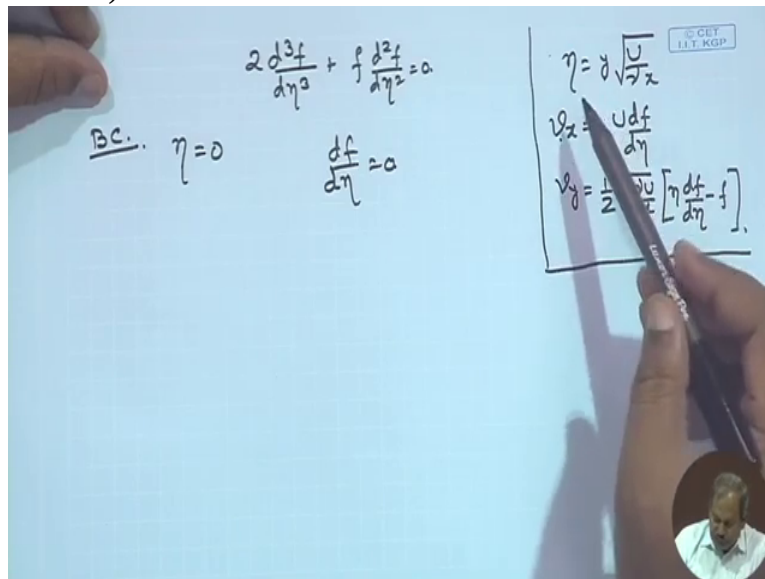 2 d³f/dη³ + f d²f/dη² = 0.
BC. η = 0 df/dη = 0
© CET
I.I.T. KGP
η = y √(U/νx)
υx = U df/dη
υy = 1/2 [η df/dη - f].